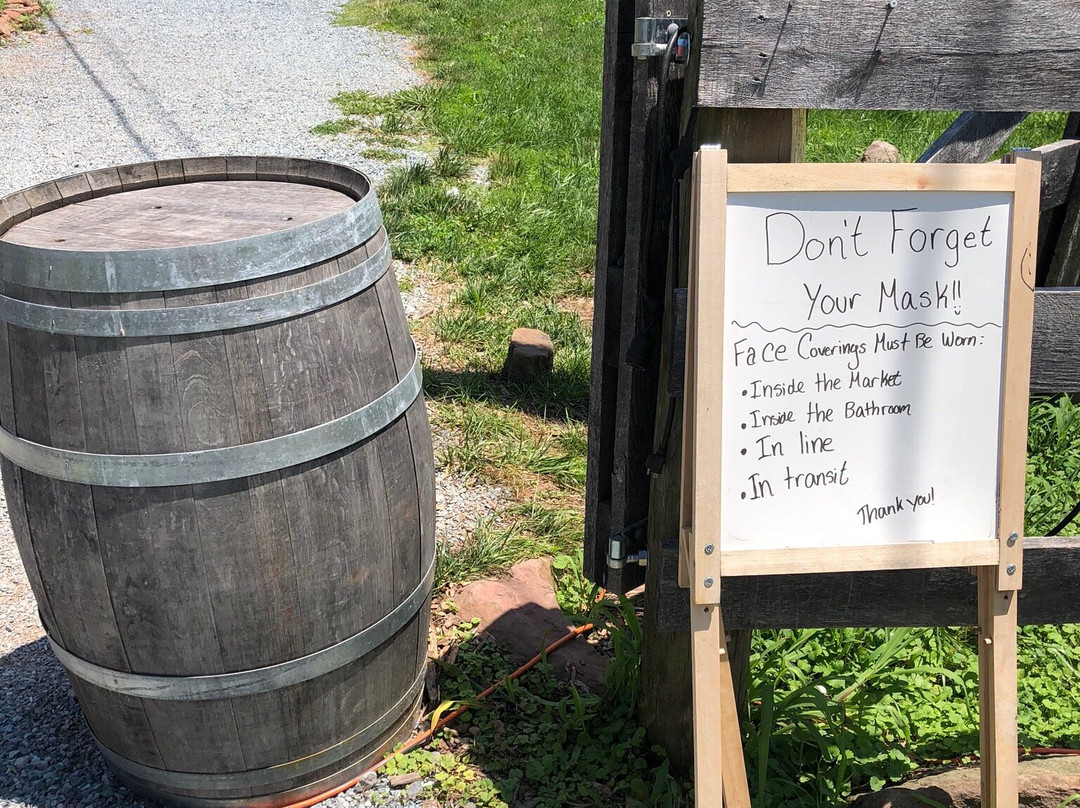 Don't Forget
Your Mask!!
Face Coverings Must Be Worn:
• Inside the Market
• Inside the Bathroom
• In line
• In transit
Thank you!